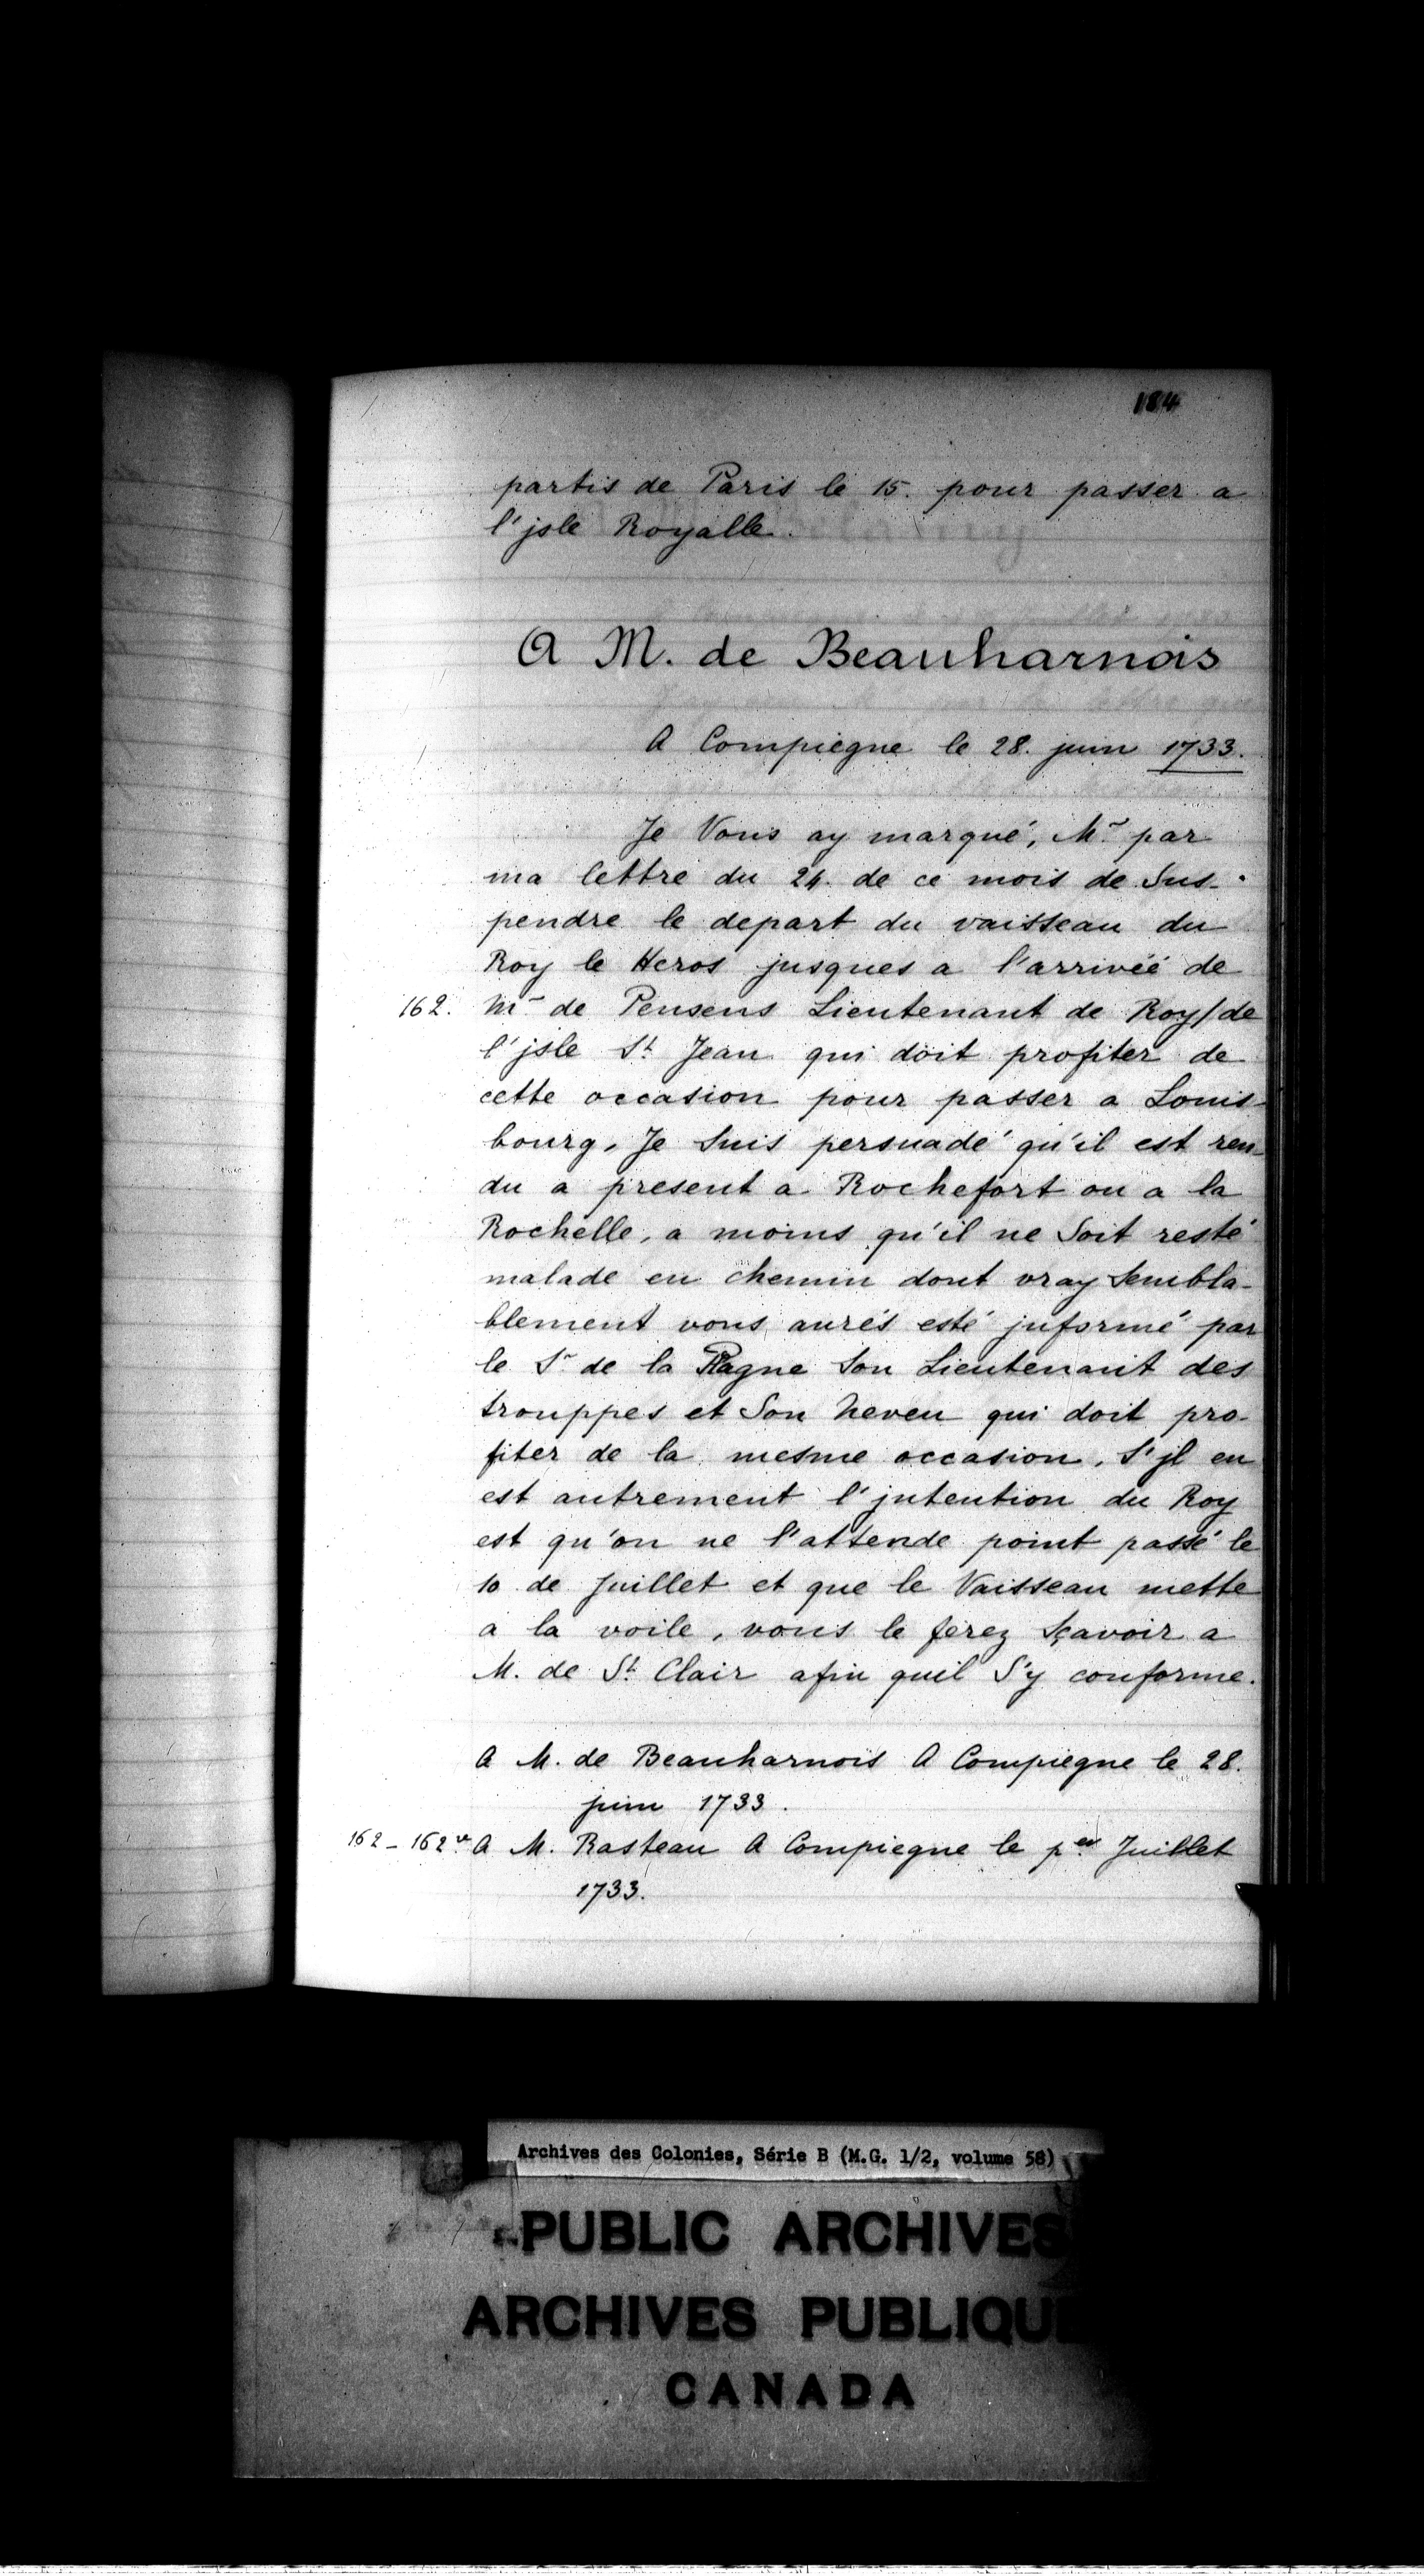 184
partis de Paris le 15. pour passer a
l'jsle Royalle.
A M. de Beauharnois
A Compiegne le 28. juin 1733.
Je Vous ay marqué, Mr par
ma lettre du 24. de ce mois de Sus-
pendre le depart du vaisseau du
Roy le Heros jusques a l'arrivéé de
162. Mr de Pensens Lieutenant de Roy/de
l'jsle St Jean qui doit profiter de
cette occasion pour passer a Louis-
bourg, Je Suis persuadé qu'il est ren-
du a present a Rochefort ou a la
Rochelle, a moins qu'il ne Soit resté
malade en chemin dont vray Sembla-
blement vous aurés esté jnformé par
le Sr de la Plagne Son Lieutenant des
trouppes et Son Neveu qui doit pro-
fiter de la mesme occasion, S'jl en
est autrement l'jntention du Roy
est qu'on ne l'attende point passé le
10 de Juillet et que le Vaisseau mette
a la voile, vous le ferez Sçavoir a
M. de St Clair afin quil S'y conforme.
A M. de Beauharnois A Compiegne le 28.
juin 1733.
162-162v A M. Rasteau A Compiegne le per Juillet
1733.
Archives des Colonies, Série B (M.G. 1/2, volume 58)
PUBLIC ARCHIVES
ARCHIVES PUBLIQUE
CANADA